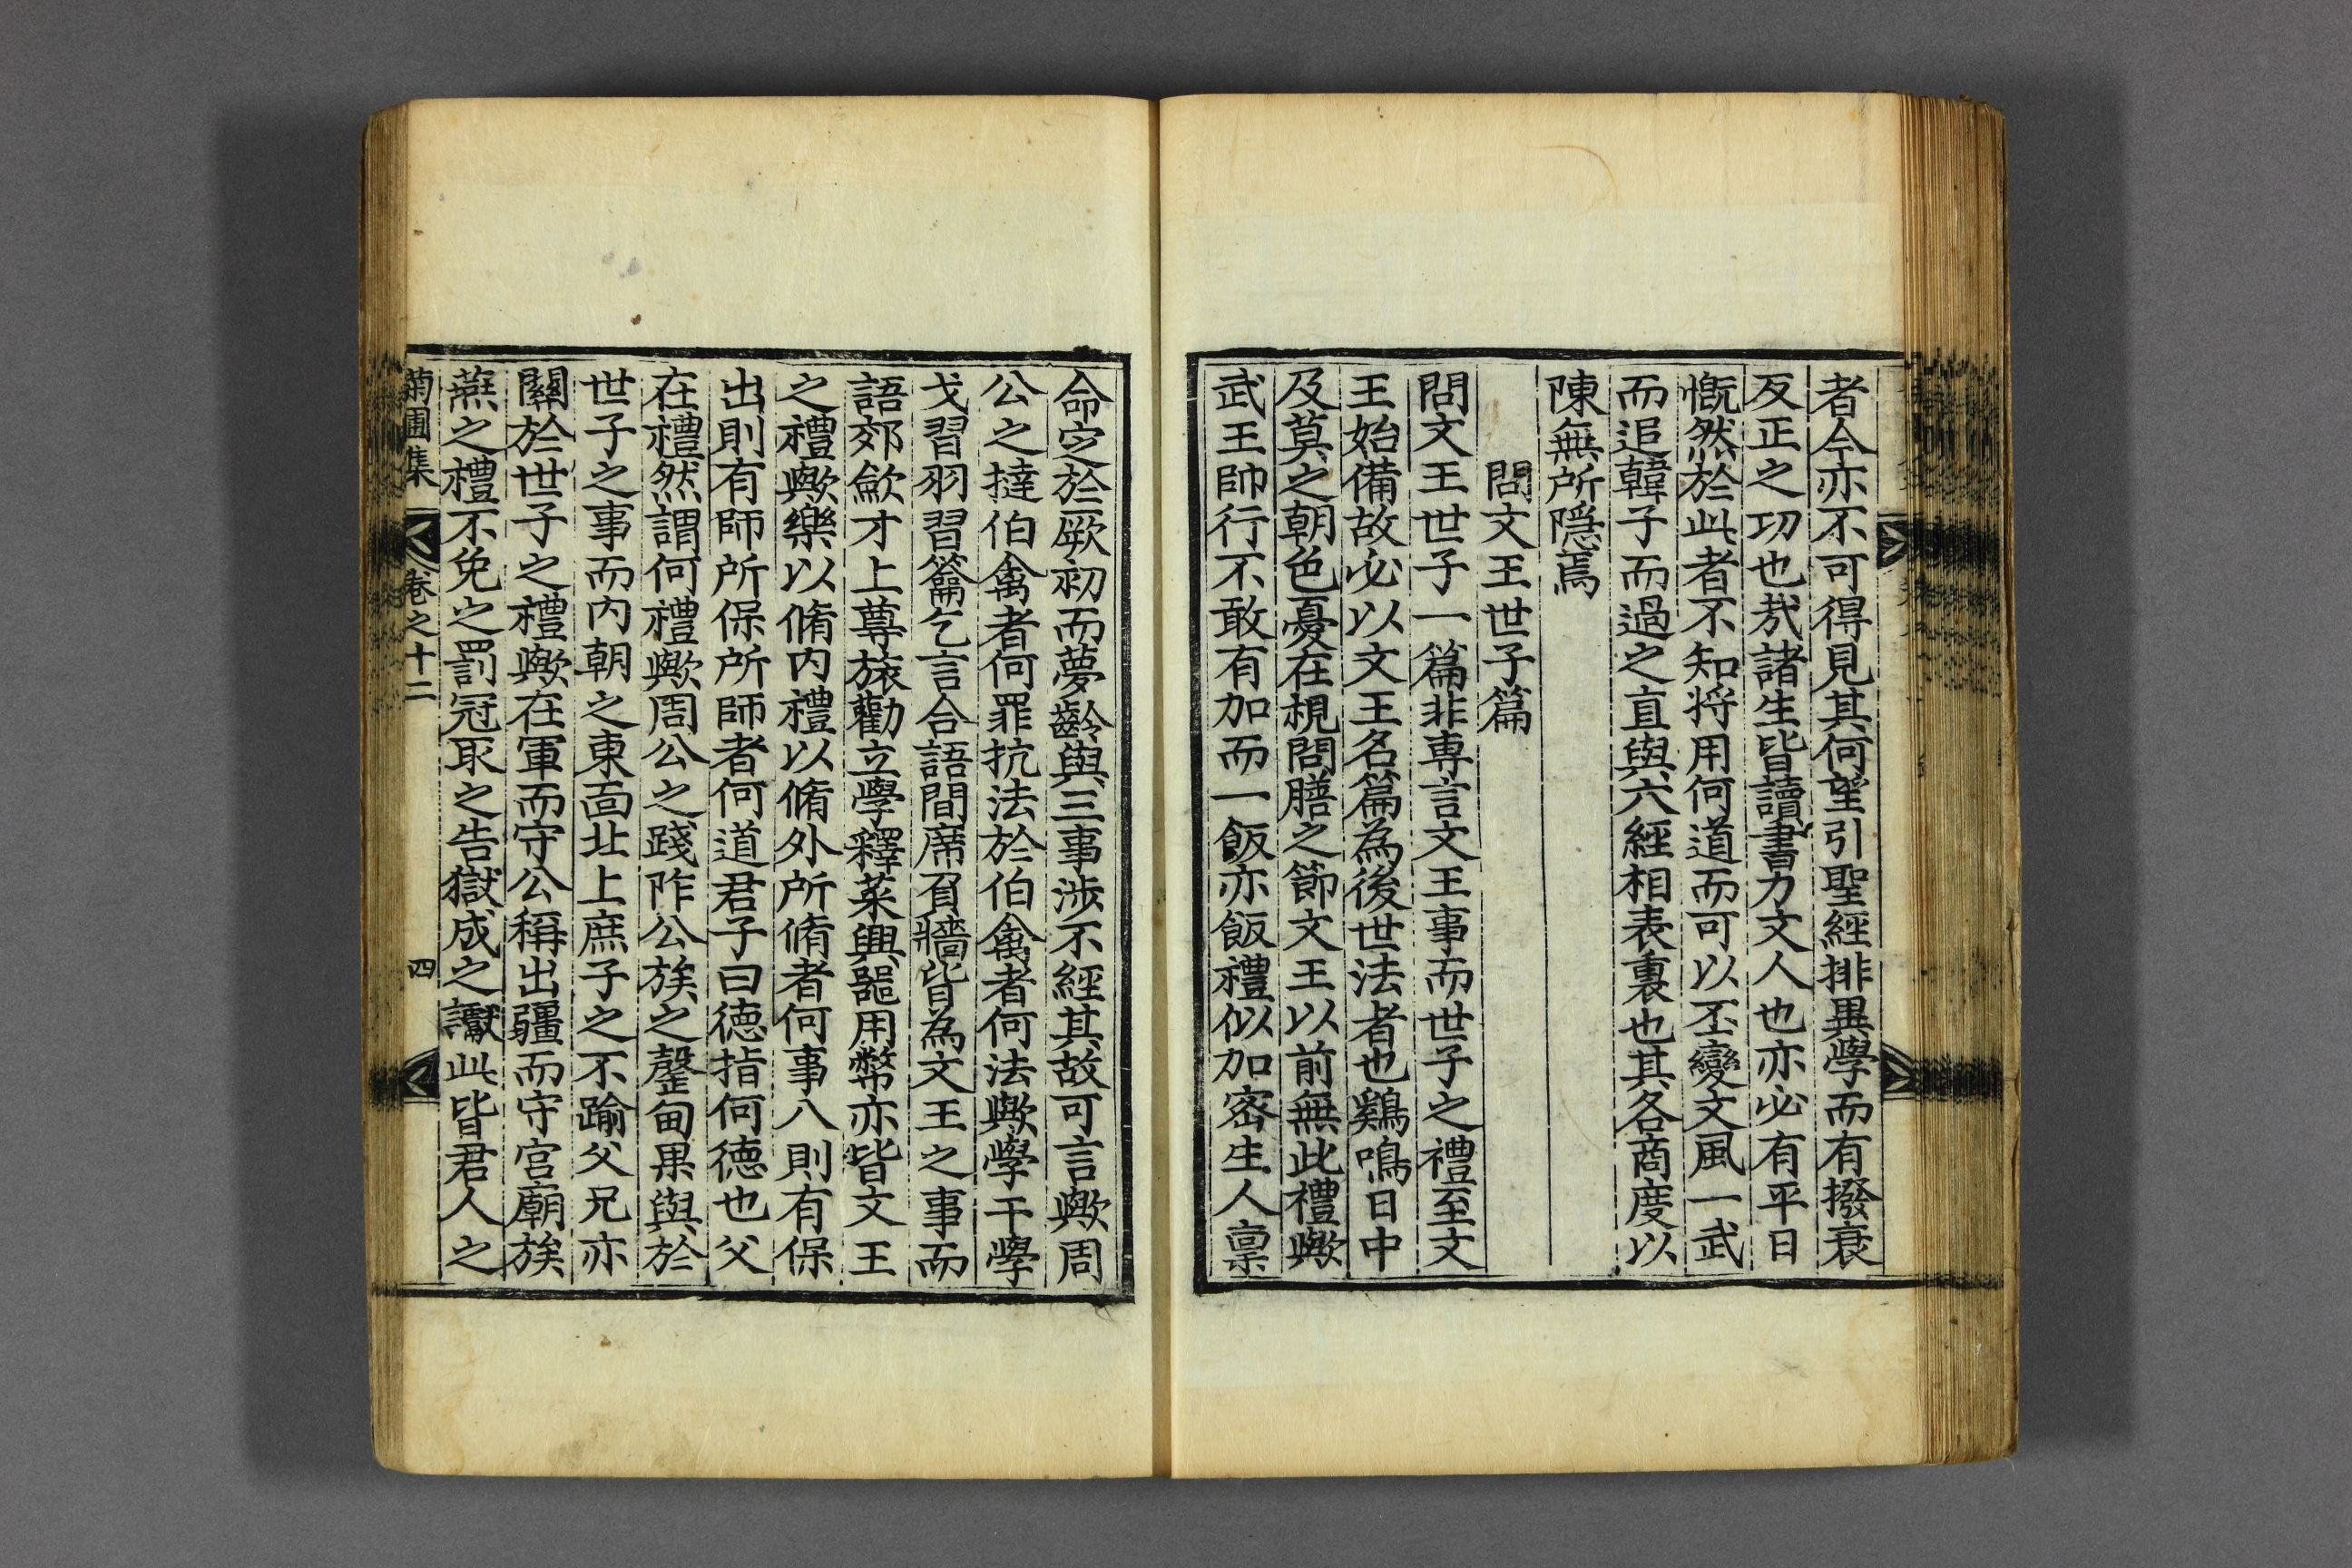 者今亦不可得見其何望引聖經排異學而有撥衰
反正之功也㢤諸生皆讀書力文人也亦必有平日
慨然於此者不知將用何道而可以丕變文風一武
而追韓子而過之直與六經相表裏也其各商度以
陳無所隱焉
問文王世子篇
問文王世子一篇非專言文王事而世子之禮至文
王始備故必以文王名篇為後世法者也鷄鳴日中
及莫之朝色憂在視問膳之節文王以前無此禮歟
武王帥行不敢有加而一飯亦飯禮似加密生人禀
命定於厥初而夢齡與三事涉不經其故可言歟周
公之撻伯禽者何罪抗法於伯禽者何法歟學干學
戈習羽習籥乞言合語間席負牆皆為文王之事而
語郊歛才上尊旅勸立學釋菜興器用幣亦皆文王
之禮歟樂以脩内禮以脩外所脩者何事入則有保
出則有師所保所師者何道君子曰德指何德也父
在禮然謂何禮歟周公之踐阼公族之磬甸果與於
世子之事而内朝之東面北上庶子之不踰父兄亦
關於世子之禮歟在軍而守公稱出疆而守宮廟族
燕之禮不免之罰冠取之告獄成之讞此皆君人之
菊圃集 卷之十二 四